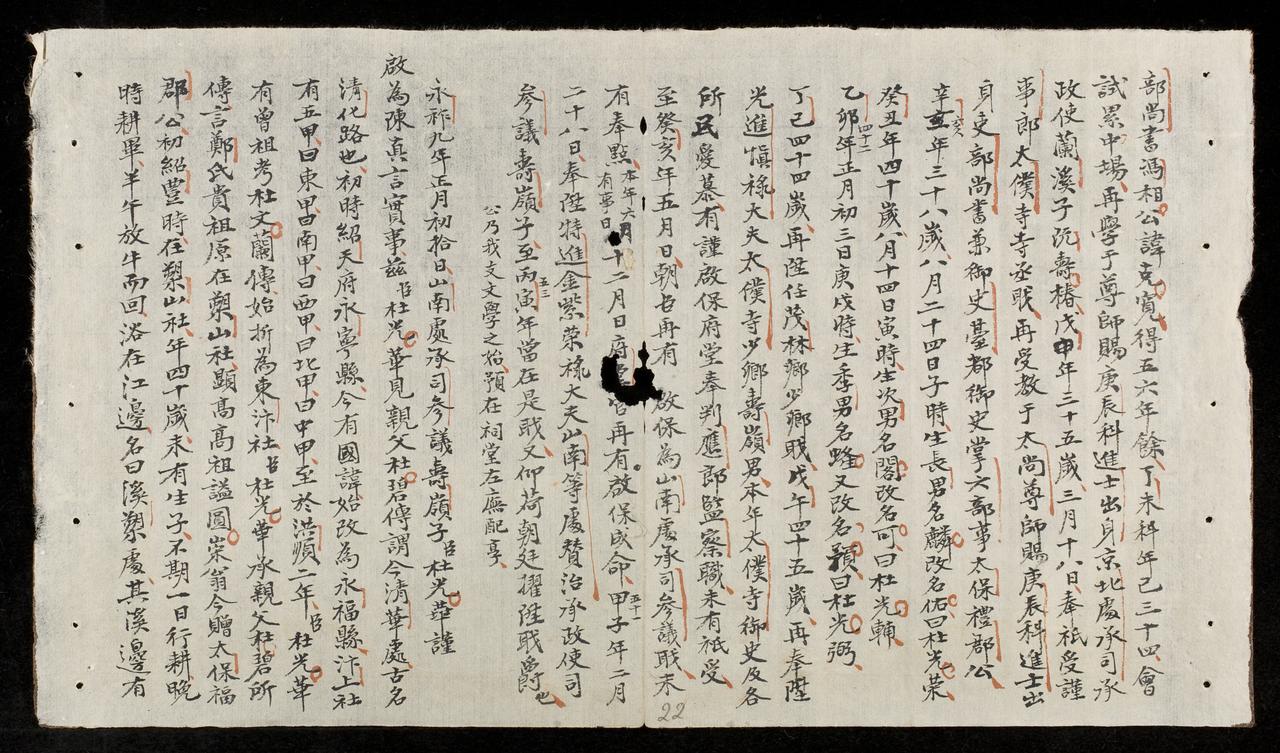 部尚書馮相公諱克寬得五六年餘丁未科年已三十四會
試累中場再學于尊師賜庚辰科進士出身京北處承司承
政使蘭溪子阮壽椿戊申年三十五歲三月十八日奉祇受謹
事郎太僕寺寺丞職再受教于太尚尊師賜庚辰科進士出
身吏部尚書兼御史臺都御史掌六部事太保禮郡公
辛亥年三十八歲八月二十四日子時生長男名麟改名佑曰杜光榮
癸丑年四十歲八月十四日寅時生次男名閣改名可曰杜光輔
乙卯年四十二正月初三日庚戌時生季男名蜂又改名預曰杜光弼
丁巳四十四歲再陞任茂林郎少卿職戊午四十五歲再奉陞
光進慎祿大夫太僕寺少卿壽嶺男本年太僕寺御史及各
所民愛慕有謹啟保府堂奉判應郎監察職未有祇受
至癸亥年五月日朝臣再有啟保為山南處承司參議職未
有奉點本年六月有事日十二月日府堂官再有啟保成命甲子年五十二二月
二十八日奉陞特進金紫榮祿大夫山南等處贊治承政使司
參議壽嶺子至丙寅五三年當在是職又仰荷朝廷擢陞職爵也
公乃我支文學之始預在祠堂左廡配享
永祚九年正月初拾日山南處承司參議壽嶺子臣杜光華謹
啟為陳真言實事茲臣杜光華見親父杜碧傳謂今清華處古名
清化路也初時紹天府永寧縣今有國諱始改為永福縣汴上社
有五甲曰東甲曰南甲曰西甲曰北甲曰中甲至於洪順二年臣杜光華
有曾祖考杜文蘭傳始折為東汴社臣杜光華承親父杜碧所
傳言鄭氏貴祖原在槊山社顯高高祖謚圓崇翁今贈太保福
郡公初紹豐時在槊山社年四十歲未有生子不期一日行耕晚
時耕畢半午放牛而回浴在江邊名曰溪槊處其溪邊有
22